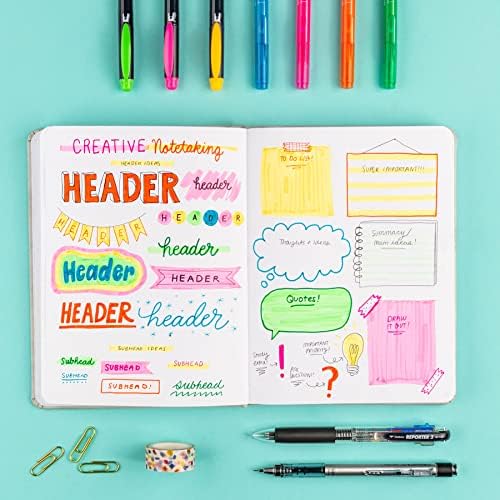 CREATIVE Notetaking
HEADER IDEAS
HEADER header
HEADER
HEADER
header
Header
HEADER
HEADER header
SUBHEAD IDEAS
Subhead SUBHEAD SUBHEAD
SUBHEAD
SUBHEAD! Subhead
TO DO LIST!
SUPER IMPORTANT!!!
Thoughts & ideas
Summary/
main ideas!
Quotes!
DRAW
IT OUT!
Study
extra!
IMPORTANT
PRIORITY!
ASK
QUESTION!
REPORTER 3